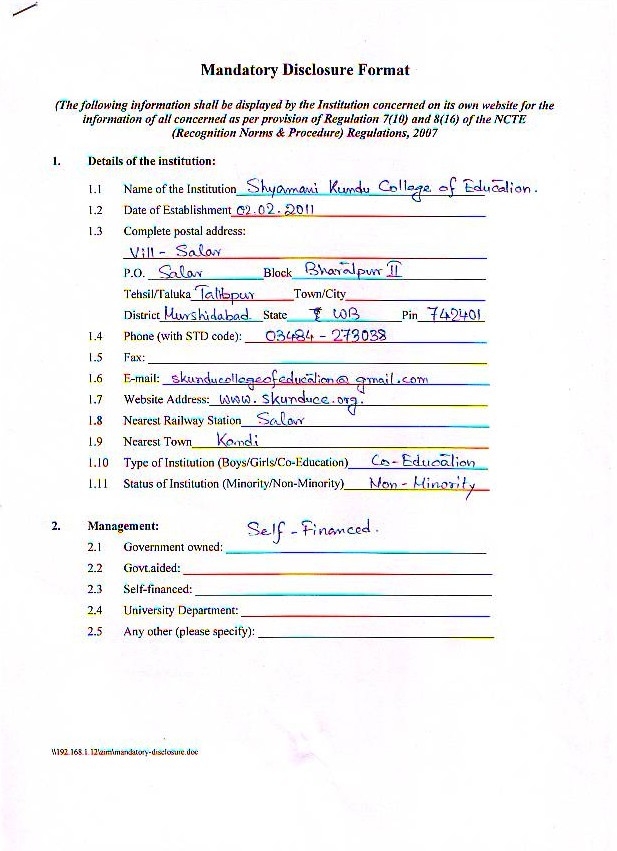 Mandatory Disclosure Format
(The following information shall be displayed by the Institution concerned on its own website for the
information of all concerned as per provision of Regulation 7(10) and 8(16) of the NCTE
(Recognition Norms & Procedure) Regulations, 2007
1. Details of the institution:
1.1 Name of the Institution Shyamani Kundu College of Education.
1.2 Date of Establishment 02.02.2011
1.3 Complete postal address:
Vill - Salar
P.O. Salar Block Bharatpur II
Tehsil/Taluka Talibpur Town/City
District Murshidabad State WB Pin 742401
1.4 Phone (with STD code): 03484 - 273038
1.5 Fax:
1.6 E-mail: skunducollegeofeducation@gmail.com
1.7 Website Address: www.skunduce.org.
1.8 Nearest Railway Station Salar
1.9 Nearest Town Kandi
1.10 Type of Institution (Boys/Girls/Co-Education) Co-Education
1.11 Status of Institution (Minority/Non-Minority) Non-Minority
2. Management: Self-Financed.
2.1 Government owned:
2.2 Govt.aided:
2.3 Self-financed:
2.4 University Department:
2.5 Any other (please specify):